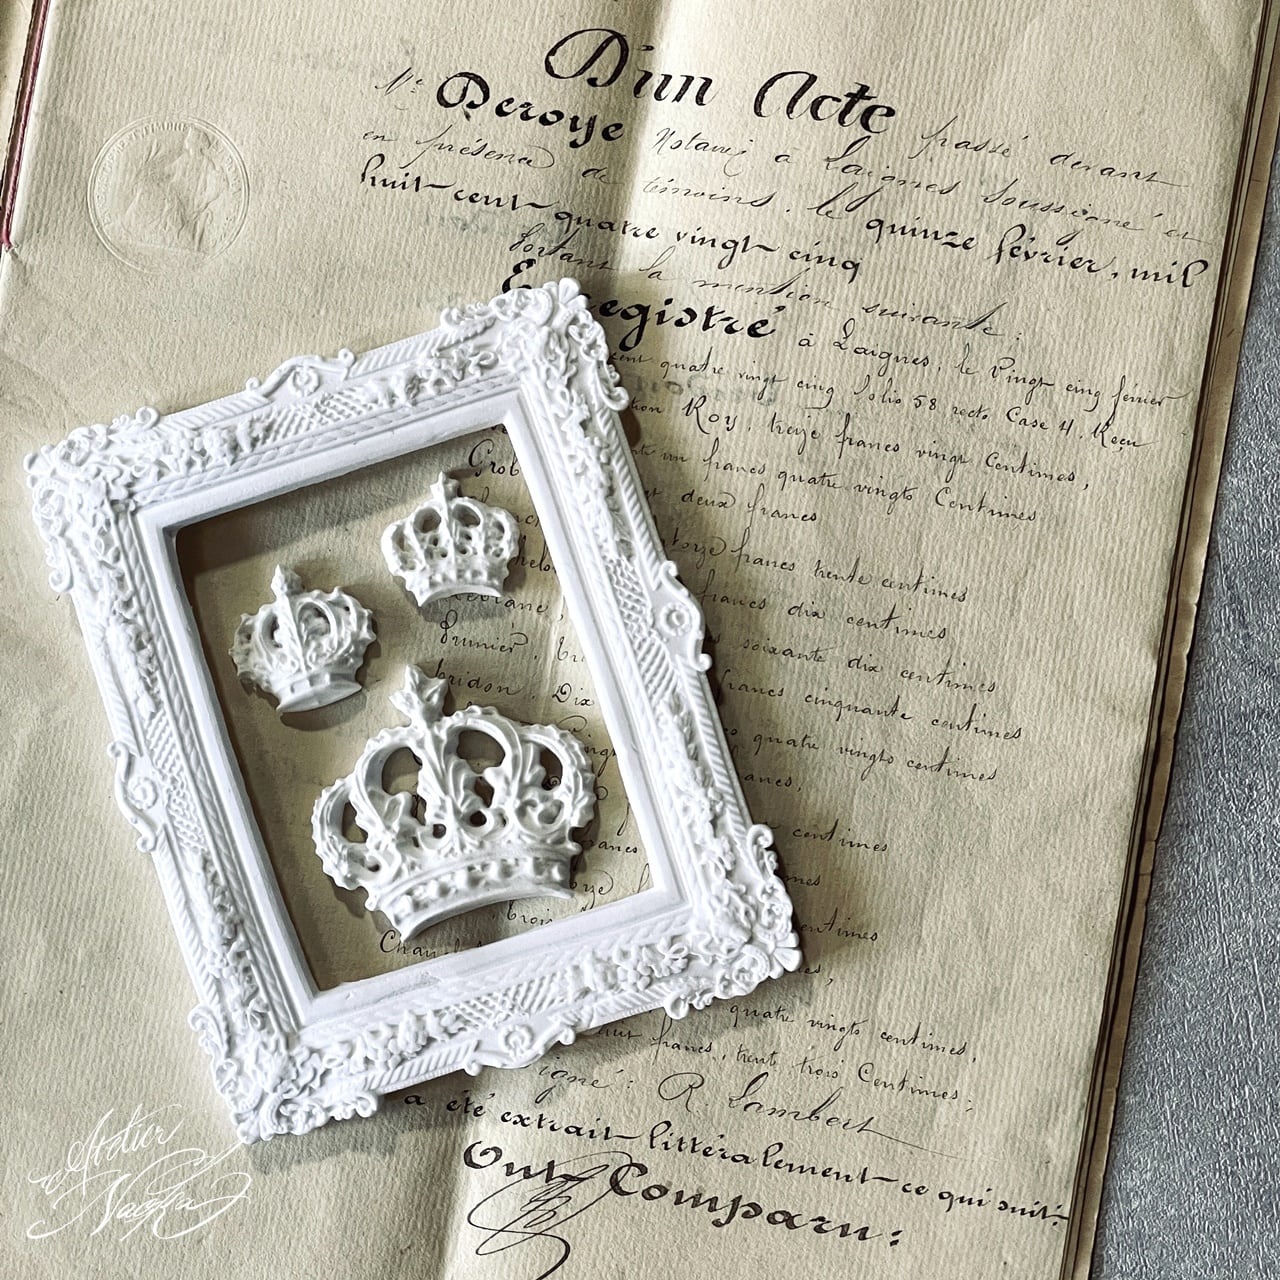 D'un Acte passé devant
Me Deroye Notaire à Laignes soussigné et
en présence de témoins, le quinze février, mil
huit-cent-quatre vingt cinq
portant la mention suivante:
egistré à Laignes, le Vingt cinq février
cent quatre vingt cinq folio 58 recto Case 4. Reçu
Roy, treize francs vingt Centimes,
un francs quatre vingts Centimes
deux francs
francs trente centimes
francs dix centimes
Prunier,
soixante dix centimes
bridon, Dix
francs cinquante centimes
quatre vingts centimes
centimes
centimes
quatre vingts centimes,
francs, trente trois Centimes.
igné: R. Lambert
a été extrait littéralement ce qui suit:
Ont Comparu:
Atelier
Naoka